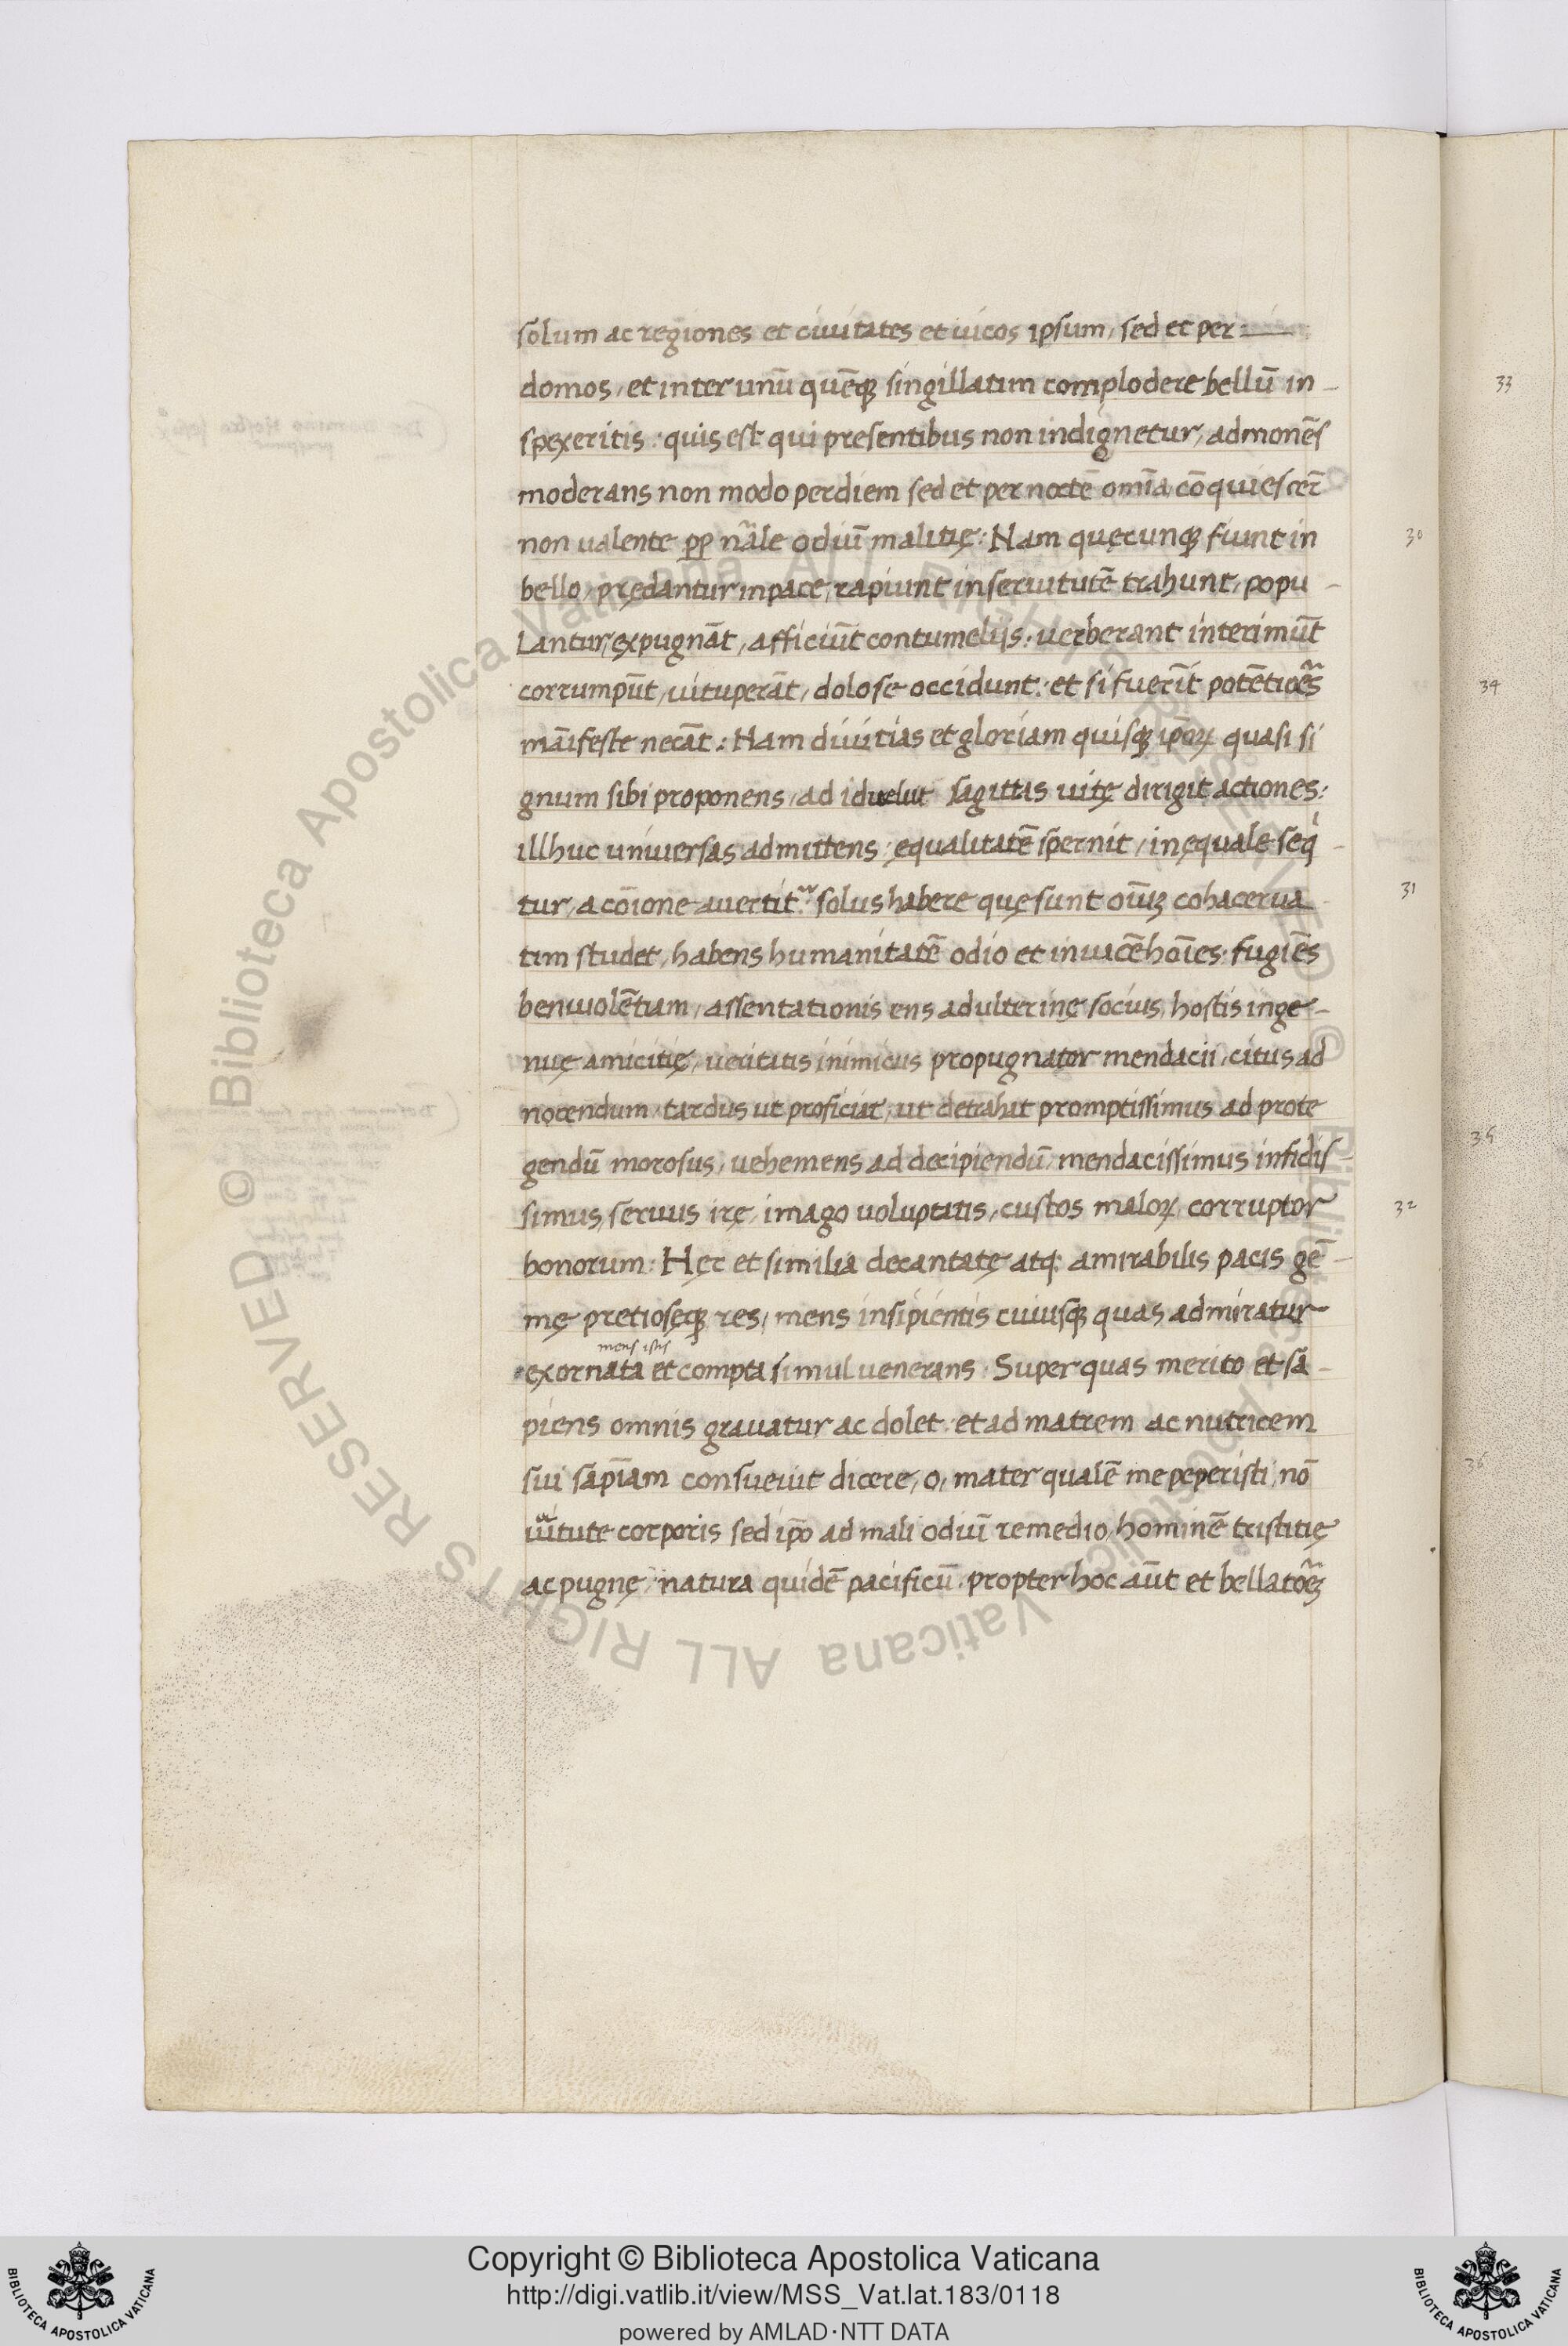 solum ac regiones et ciuitates et uicos ipsum, sed et per
domos, et inter unū quēq; singillatim complodere bellū in-
spexeritis: quis est qui presentibus non indignetur, admonēs
moderans non modo perdiem sed et per noctē omīa, cōquiescer̄
non ualente ꝓp nāle odiū malitię: Nam quęcunq; fiunt in
bello, prędantur in pace, rapiunt in seruitutē trahunt, popu-
Lantur, expugnāt, afficiūt contumeliis: uerberant interimūt
corrumpūt, uituperāt, dolose occidunt: et si fuerīt potētiores
manīfeste necāt: Nam diuitias et gloriam quisq; ipōꝝ quasi si
gnum sibi proponens, ad id uelut sagittas uitę dirigit actiones:
illhuc uniuersas admittens: ęqualitatē spernit, inęquale seq-
tur, a cōione auertit: solus habere quę sunt oīuꝫ cohacerua
tim studet, habens humanitatē odio et inuacē hoīes: fugiēs
beniuolētiam, assentationis ens adulterinę socius, hostis inge-
nuę amicitię, ueritatis inimicus propugnator mendacii, citus ad
nocendum, tardus ut proficiat, ut detrahat promptissimus ad prote
gendū morosus, uehemens ad decipiendū, mendacissimus infidis-
simus, seruus irę, imago uoluptatis, custos maloꝝ, corruptor
bonorum: Hęc et similia decantatę atq: amirabilis pacis gē-
mę pretiosęq; res, mens insipientis cuiusq; quas admiratur
mens istis
exornata et compta simul uenerans. Super quas merito et sā-
piens omnis grauatur ac dolet: et ad matrem ac nutricem
sui sāpiam consueuit dicere, o, mater qualē me peperisti, nō
uītute corporis sed ipō ad mali odiū remedio, hominē tristitię
ac pugnę, natura quidē pacificū. propter hoc aūt et bellatoeꝫ
30
31
32
33
34
35
36
© Biblioteca Apostolica Vaticana ALL RIGHTS RESERVED
© Biblioteca Apostolica Vaticana ALL RIGHTS RESERVED
Copyright © Biblioteca Apostolica Vaticana
http://digi.vatlib.it/view/MSS_Vat.lat.183/0118
powered by AMLAD·NTT DATA
BIBLIOTECA APOSTOLICA VATICANA
BIBLIOTECA APOSTOLICA VATICANA